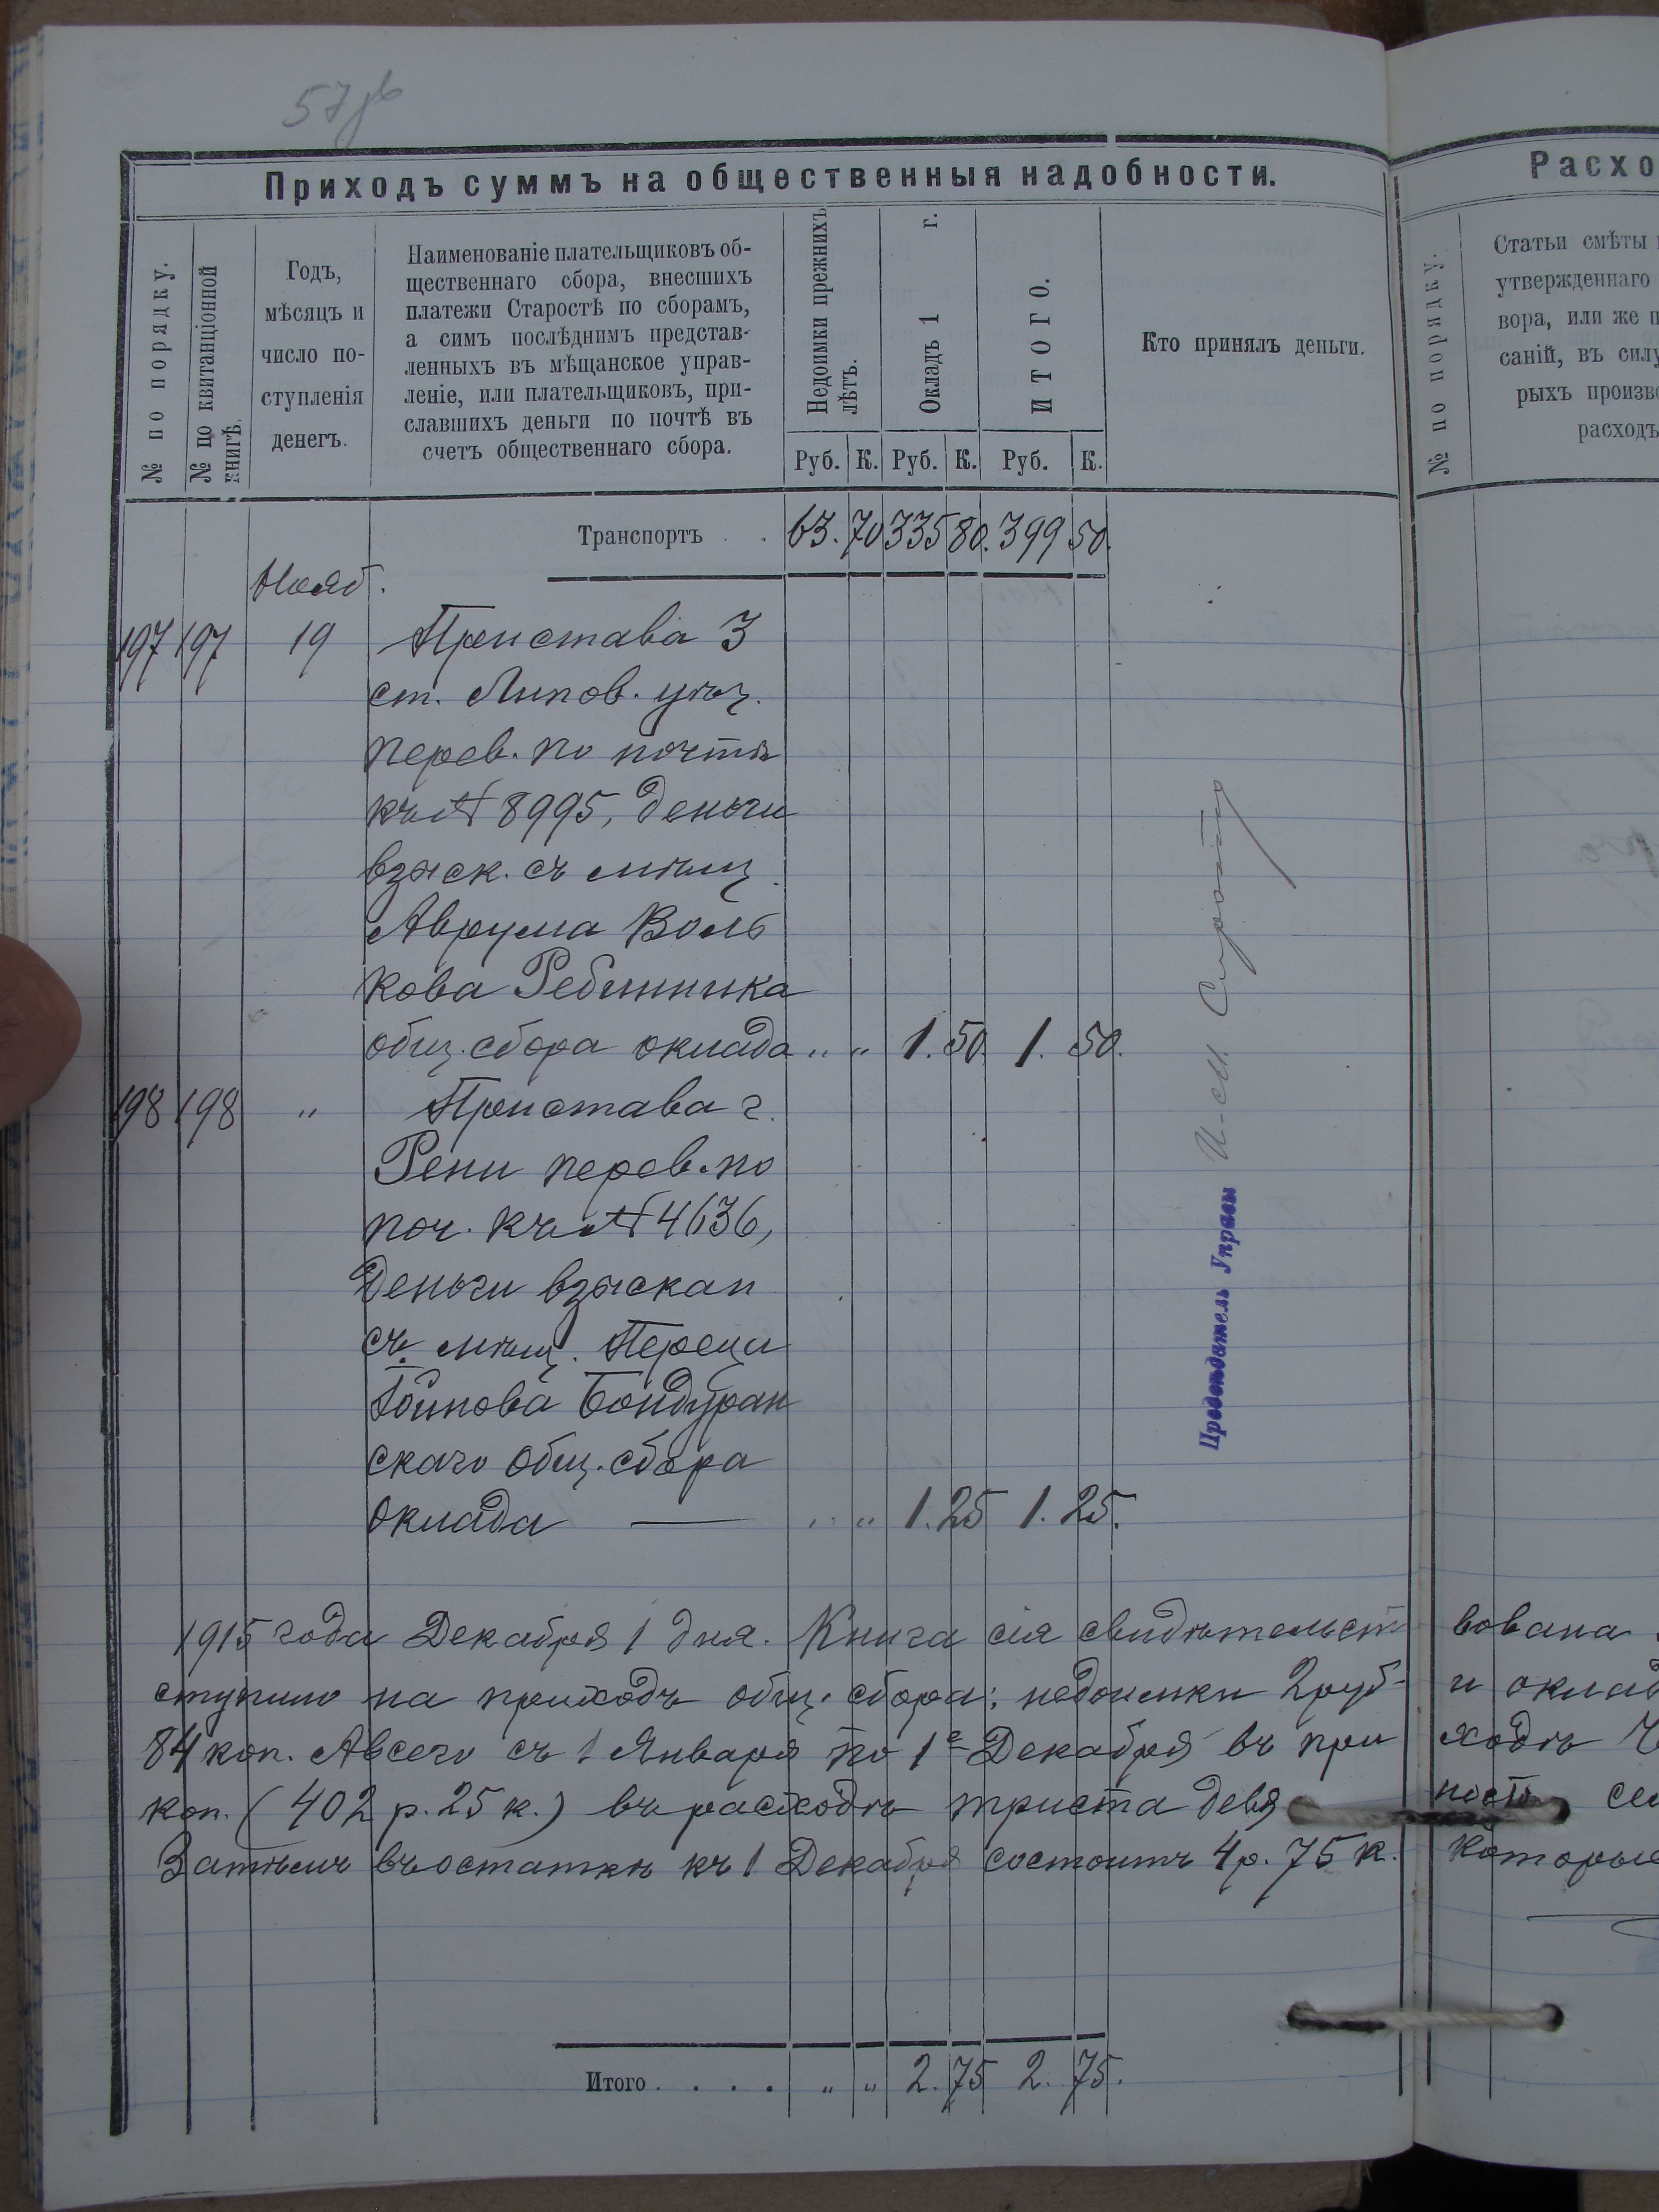 57
Приходъ суммъ на общественныя надобности.
№ по порядку.
№ по квитанціонной книгѣ.
Годъ,
мѣсяцъ и
число по-
ступленія
денегъ.
Наименованіе плательщиковъ об-
щественнаго сбора, внесшихъ
платежи Старостѣ по сборамъ,
а симъ послѣднимъ представ-
ленныхъ въ мѣщанское управ-
леніе, или плательщиковъ, при-
славшихъ деньги по почтѣ въ
счетъ общественнаго сбора.
Недоимки прежнихъ
лѣтъ.
Окладъ 1 г.
ИТОГО.
Кто принялъ деньги.
Руб. К. Руб. К. Руб. К.
Транспортъ . . 63. 70 335 80. 399 50.
Нояб.
197 197 19 Пристава 3
ст. Липов. уѣз.
перев. по почтѣ
къ № 8995, деньги
взыск. съ мѣщ.
Аврума Воль
кова Ребинника
общ. сбора оклада " " 1. 50. 1. 50.
198 198 " Пристава г.
Рени перев. по
поч. къ № 4636,
деньги взыскан
съ мѣщ. Переца
Бондуран
скаго общ. сбора
оклада — " " 1. 25 1. 25.
Предсѣдатель Управы
1915 года Декабря 1 дня. Книга сія свидѣтельст вована
ступило на приходъ общ. сбора: недоимки 2 руб. и оклад
84 коп. А всего съ 1 Января по 1е Декабря въ при ходѣ
коп. (402 р. 25 к.) въ расходѣ триста девя носто сем
Затѣмъ въ остаткѣ къ 1 Декабря состоитъ 4 р. 75 к. которые
Итого . . . . " " 2. 75 2. 75.
Расхо
№ по порядку.
Статьи смѣты
утвержденнаго
вора, или же п
саній, въ силу
рыхъ произво
расходъ